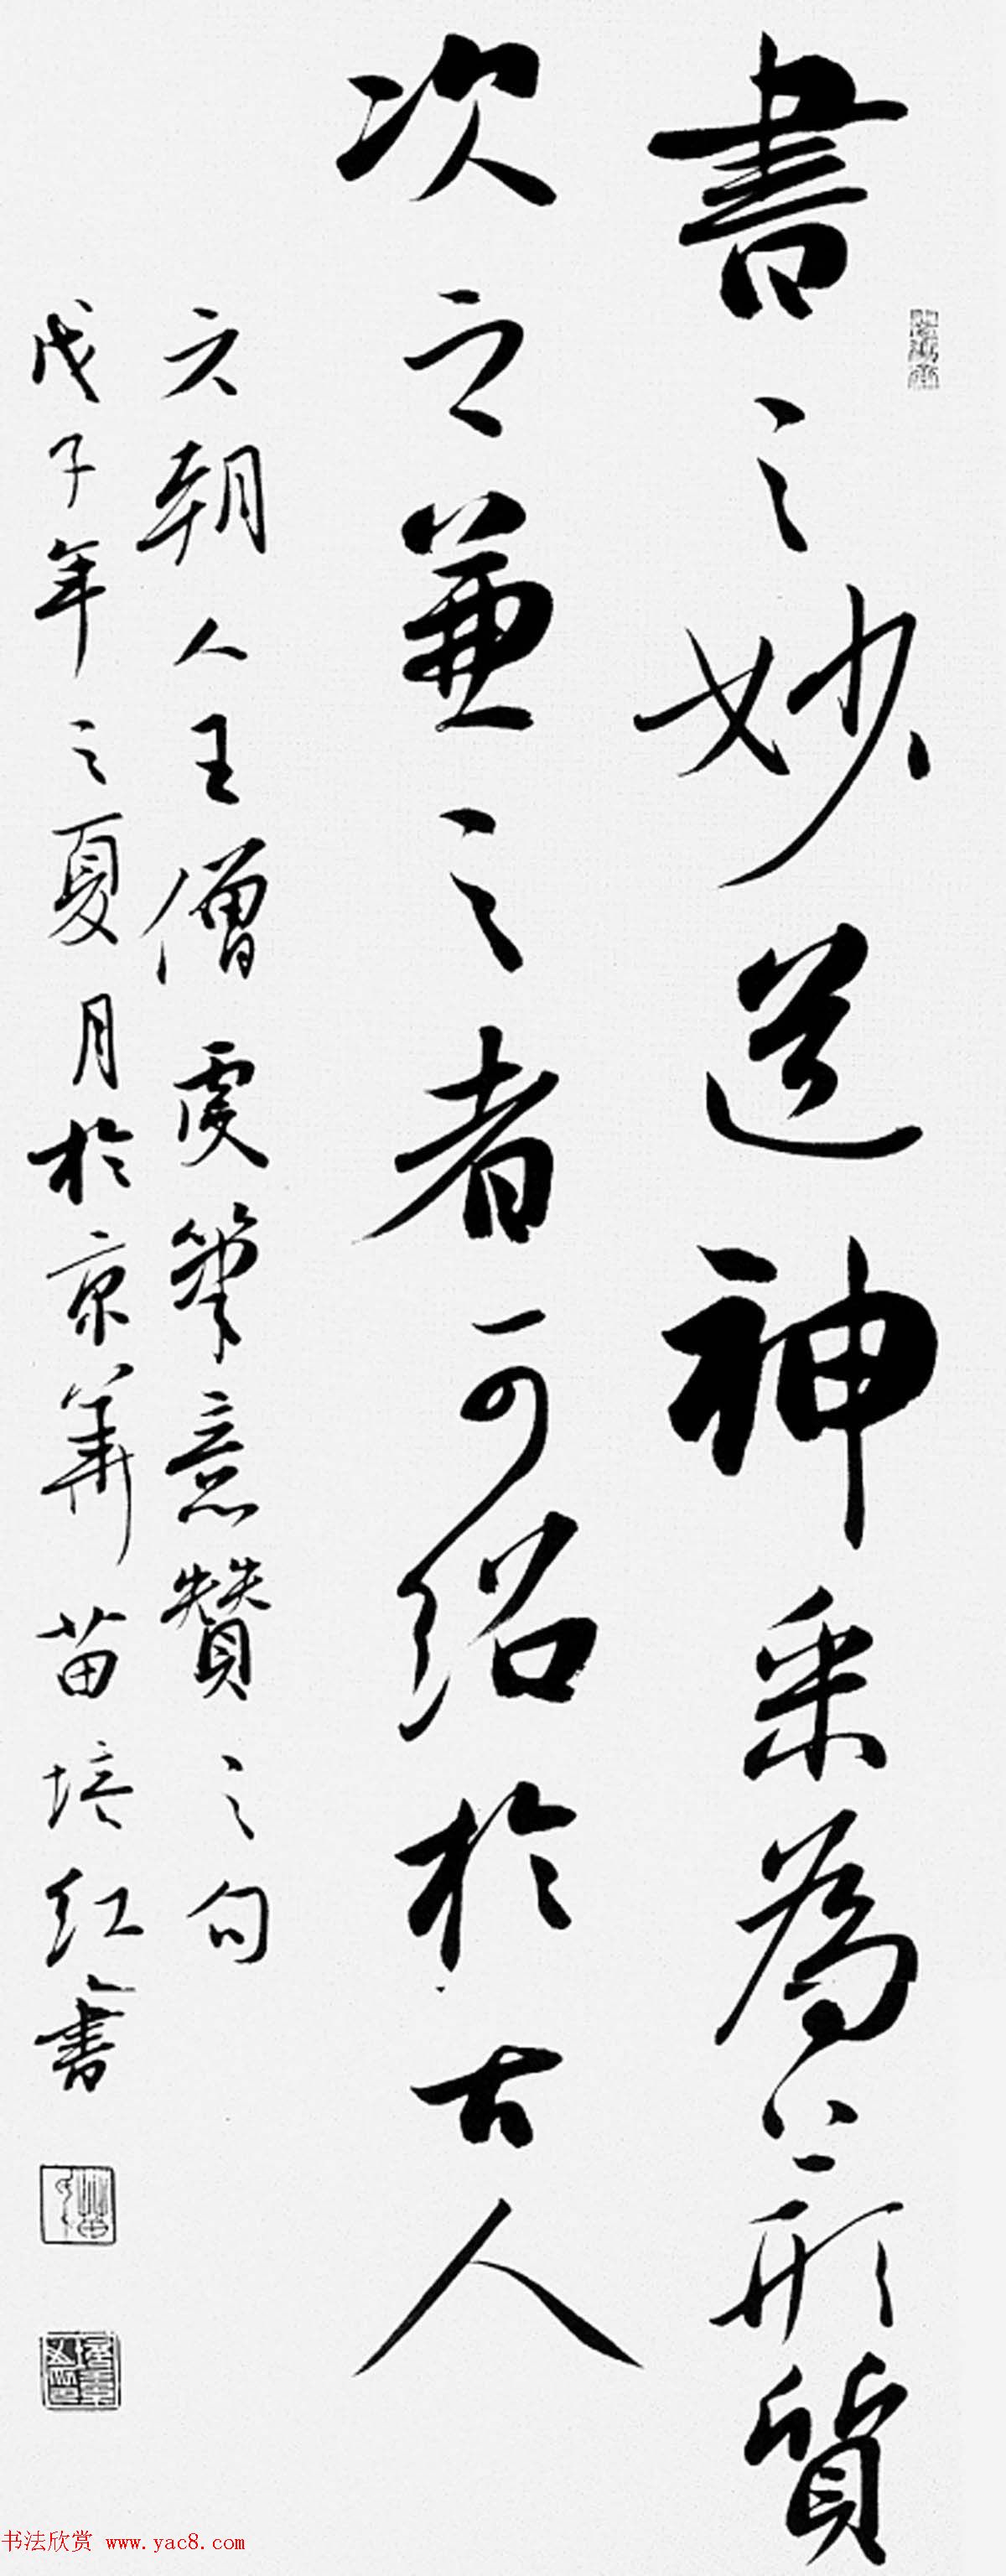 書之妙道神采為上形質
次之兼之者可紹於古人
六朝人王僧虔筆意贊之句
戊子年之夏月於京華苗培红書
书法欣赏 www.yac8.com